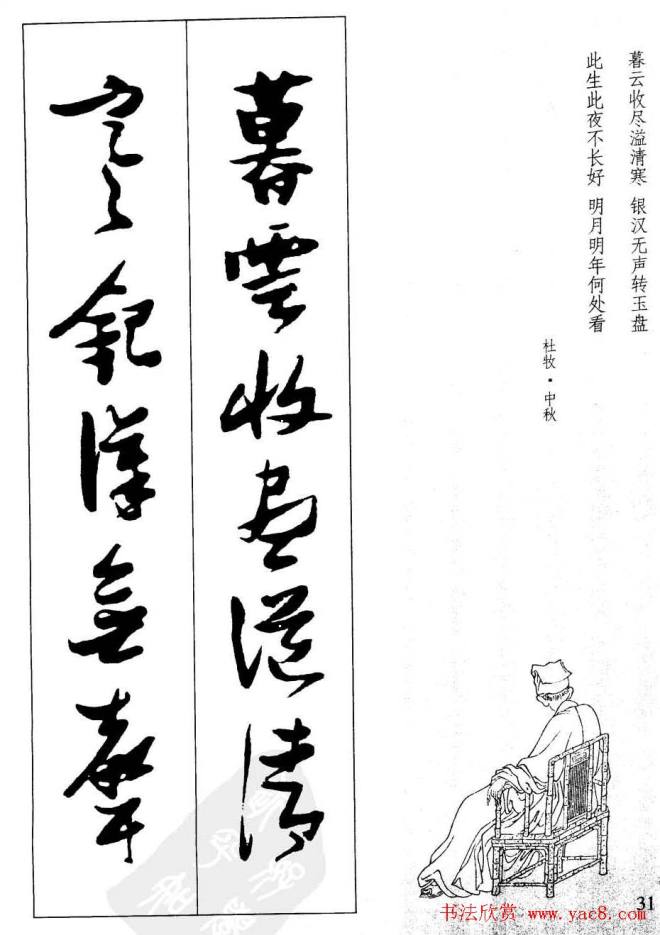 暮云收尽溢清寒 银汉无声转玉盘
此生此夜不长好 明月明年何处看
杜牧·中秋
暮雲收盡溢清
寒銀漢無聲
31
书法欣赏 www.yac8.com